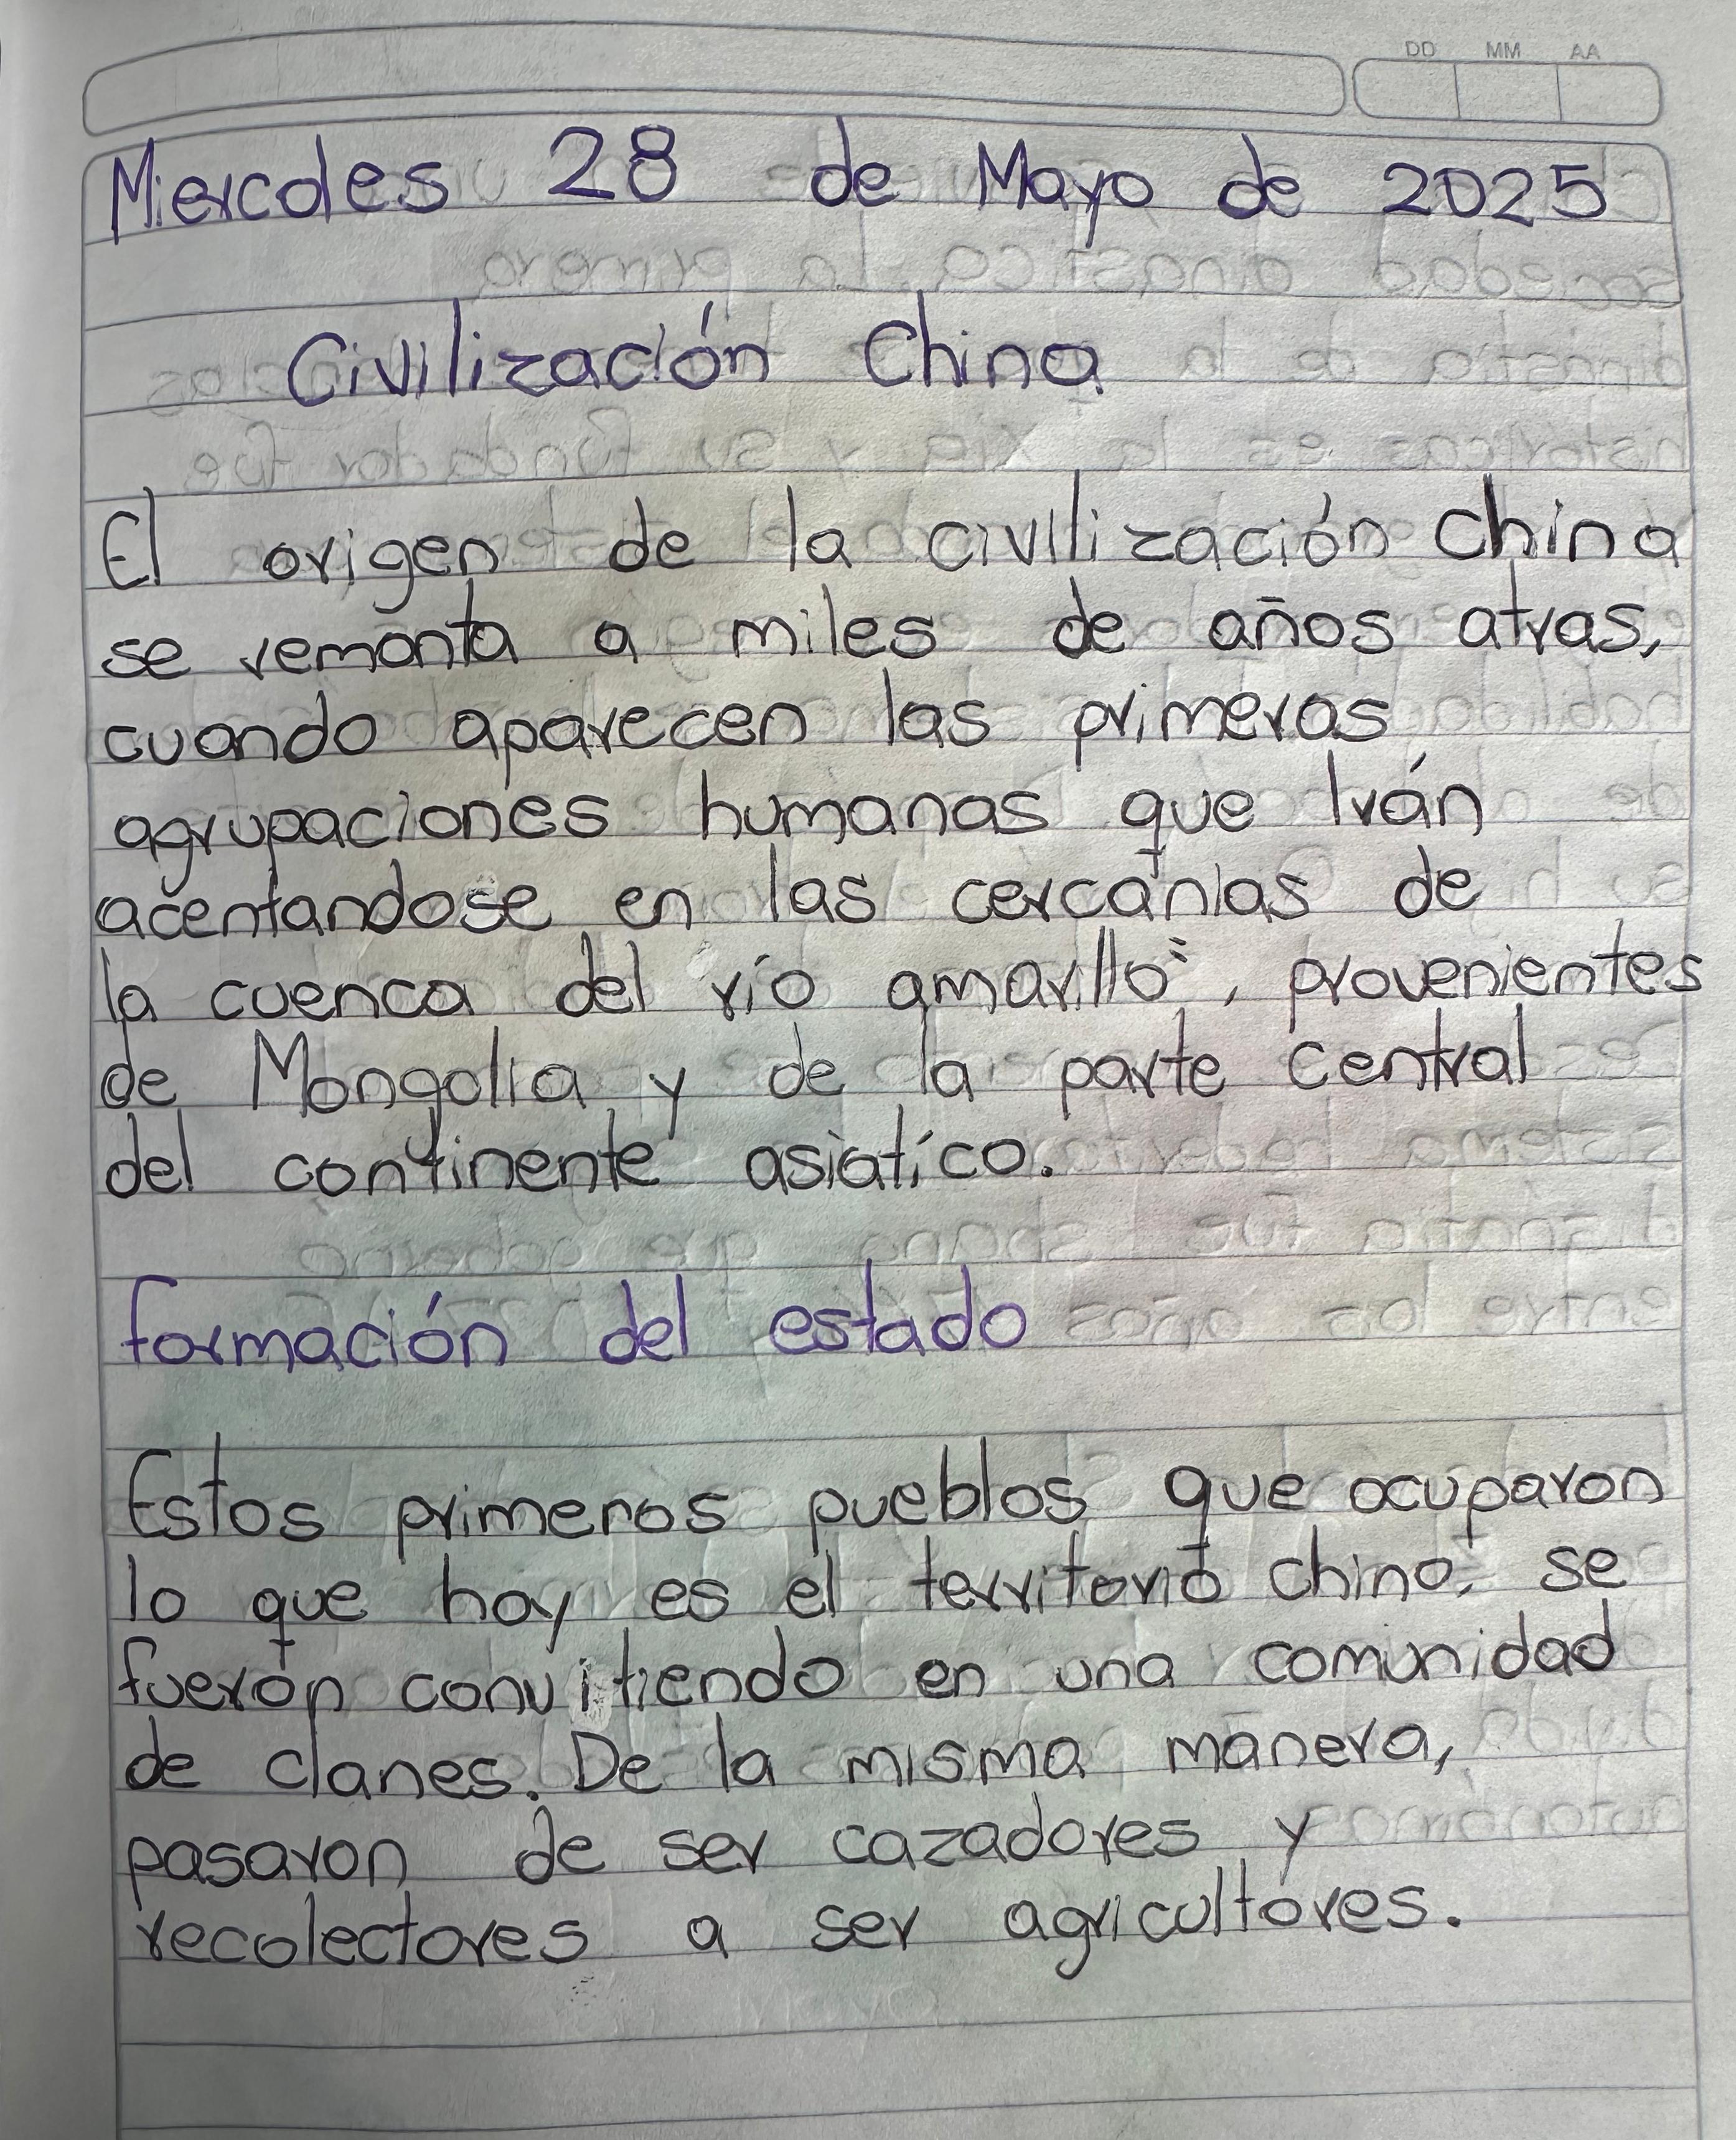 DD MM AA
Miercoles 28 de Mayo de 2025
Civilización China
El origen de la civilización china
se remonta a miles de años atras,
cuando aparecen las primeras
agrupaciones humanas que Iván
acentandose en las cercanías de
la cuenca del río amarillo, provenientes
de Mongolia y de la parte central
del continente asiatíco.
formación del estado
Estos primeros pueblos que ocuparon
lo que hoy es el territorio chino, se
fueron convitiendo en una comunidad
de clanes. De la misma manera,
pasaron de ser cazadores y
recolectores a ser agricultores.